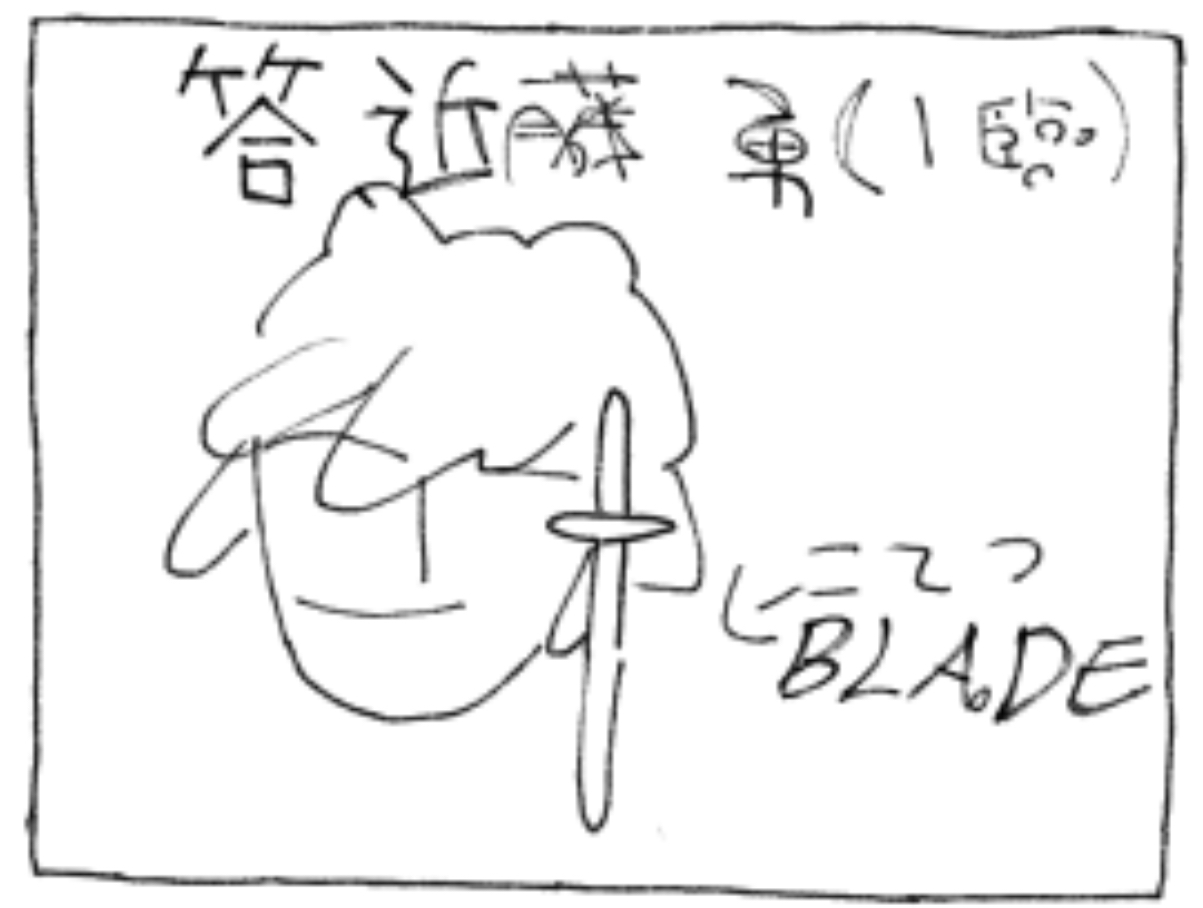 答 近藤 勇(1臨)
こてつ
BLADE